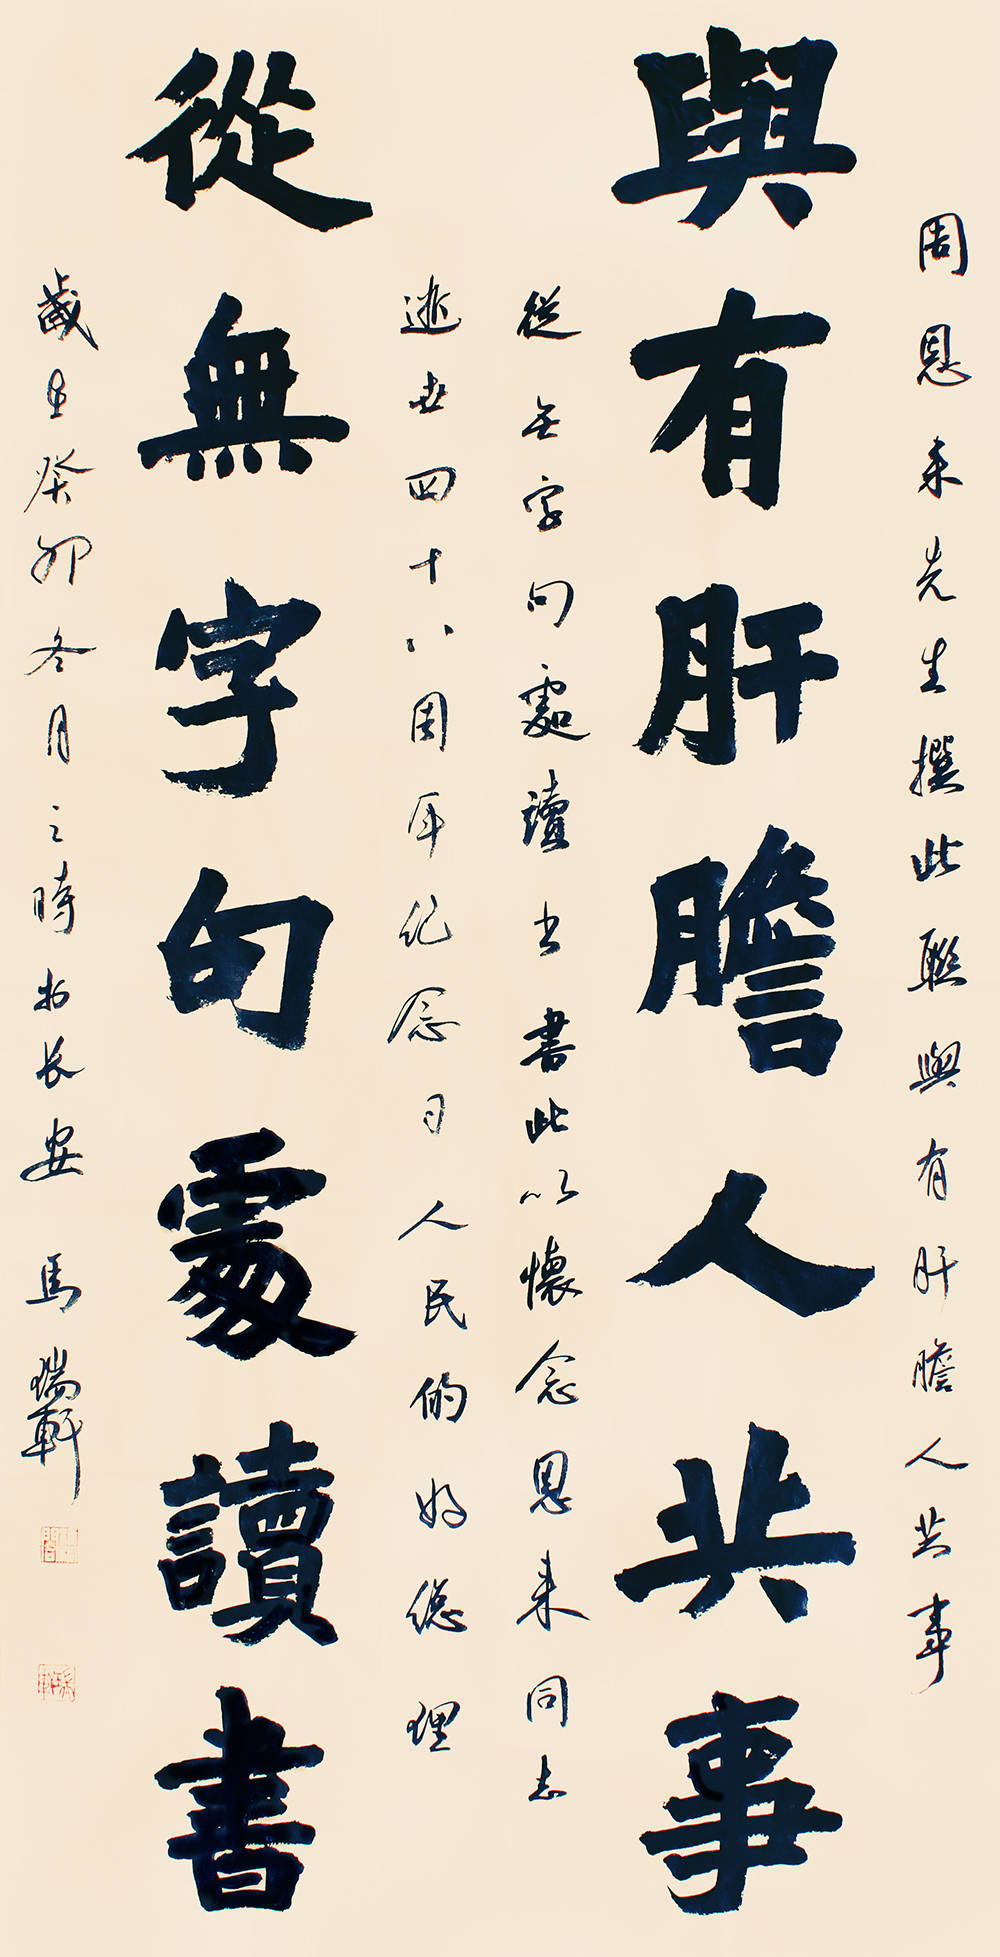 周恩来先生撰此联與有肝膽人共事
與有肝膽人共事
從无字句處讀书書此以懷念恩来同志
逝世四十八周年纪念日人民的好總理
從無字句處讀書
歲在癸卯冬月之時於长安馬瑞軒